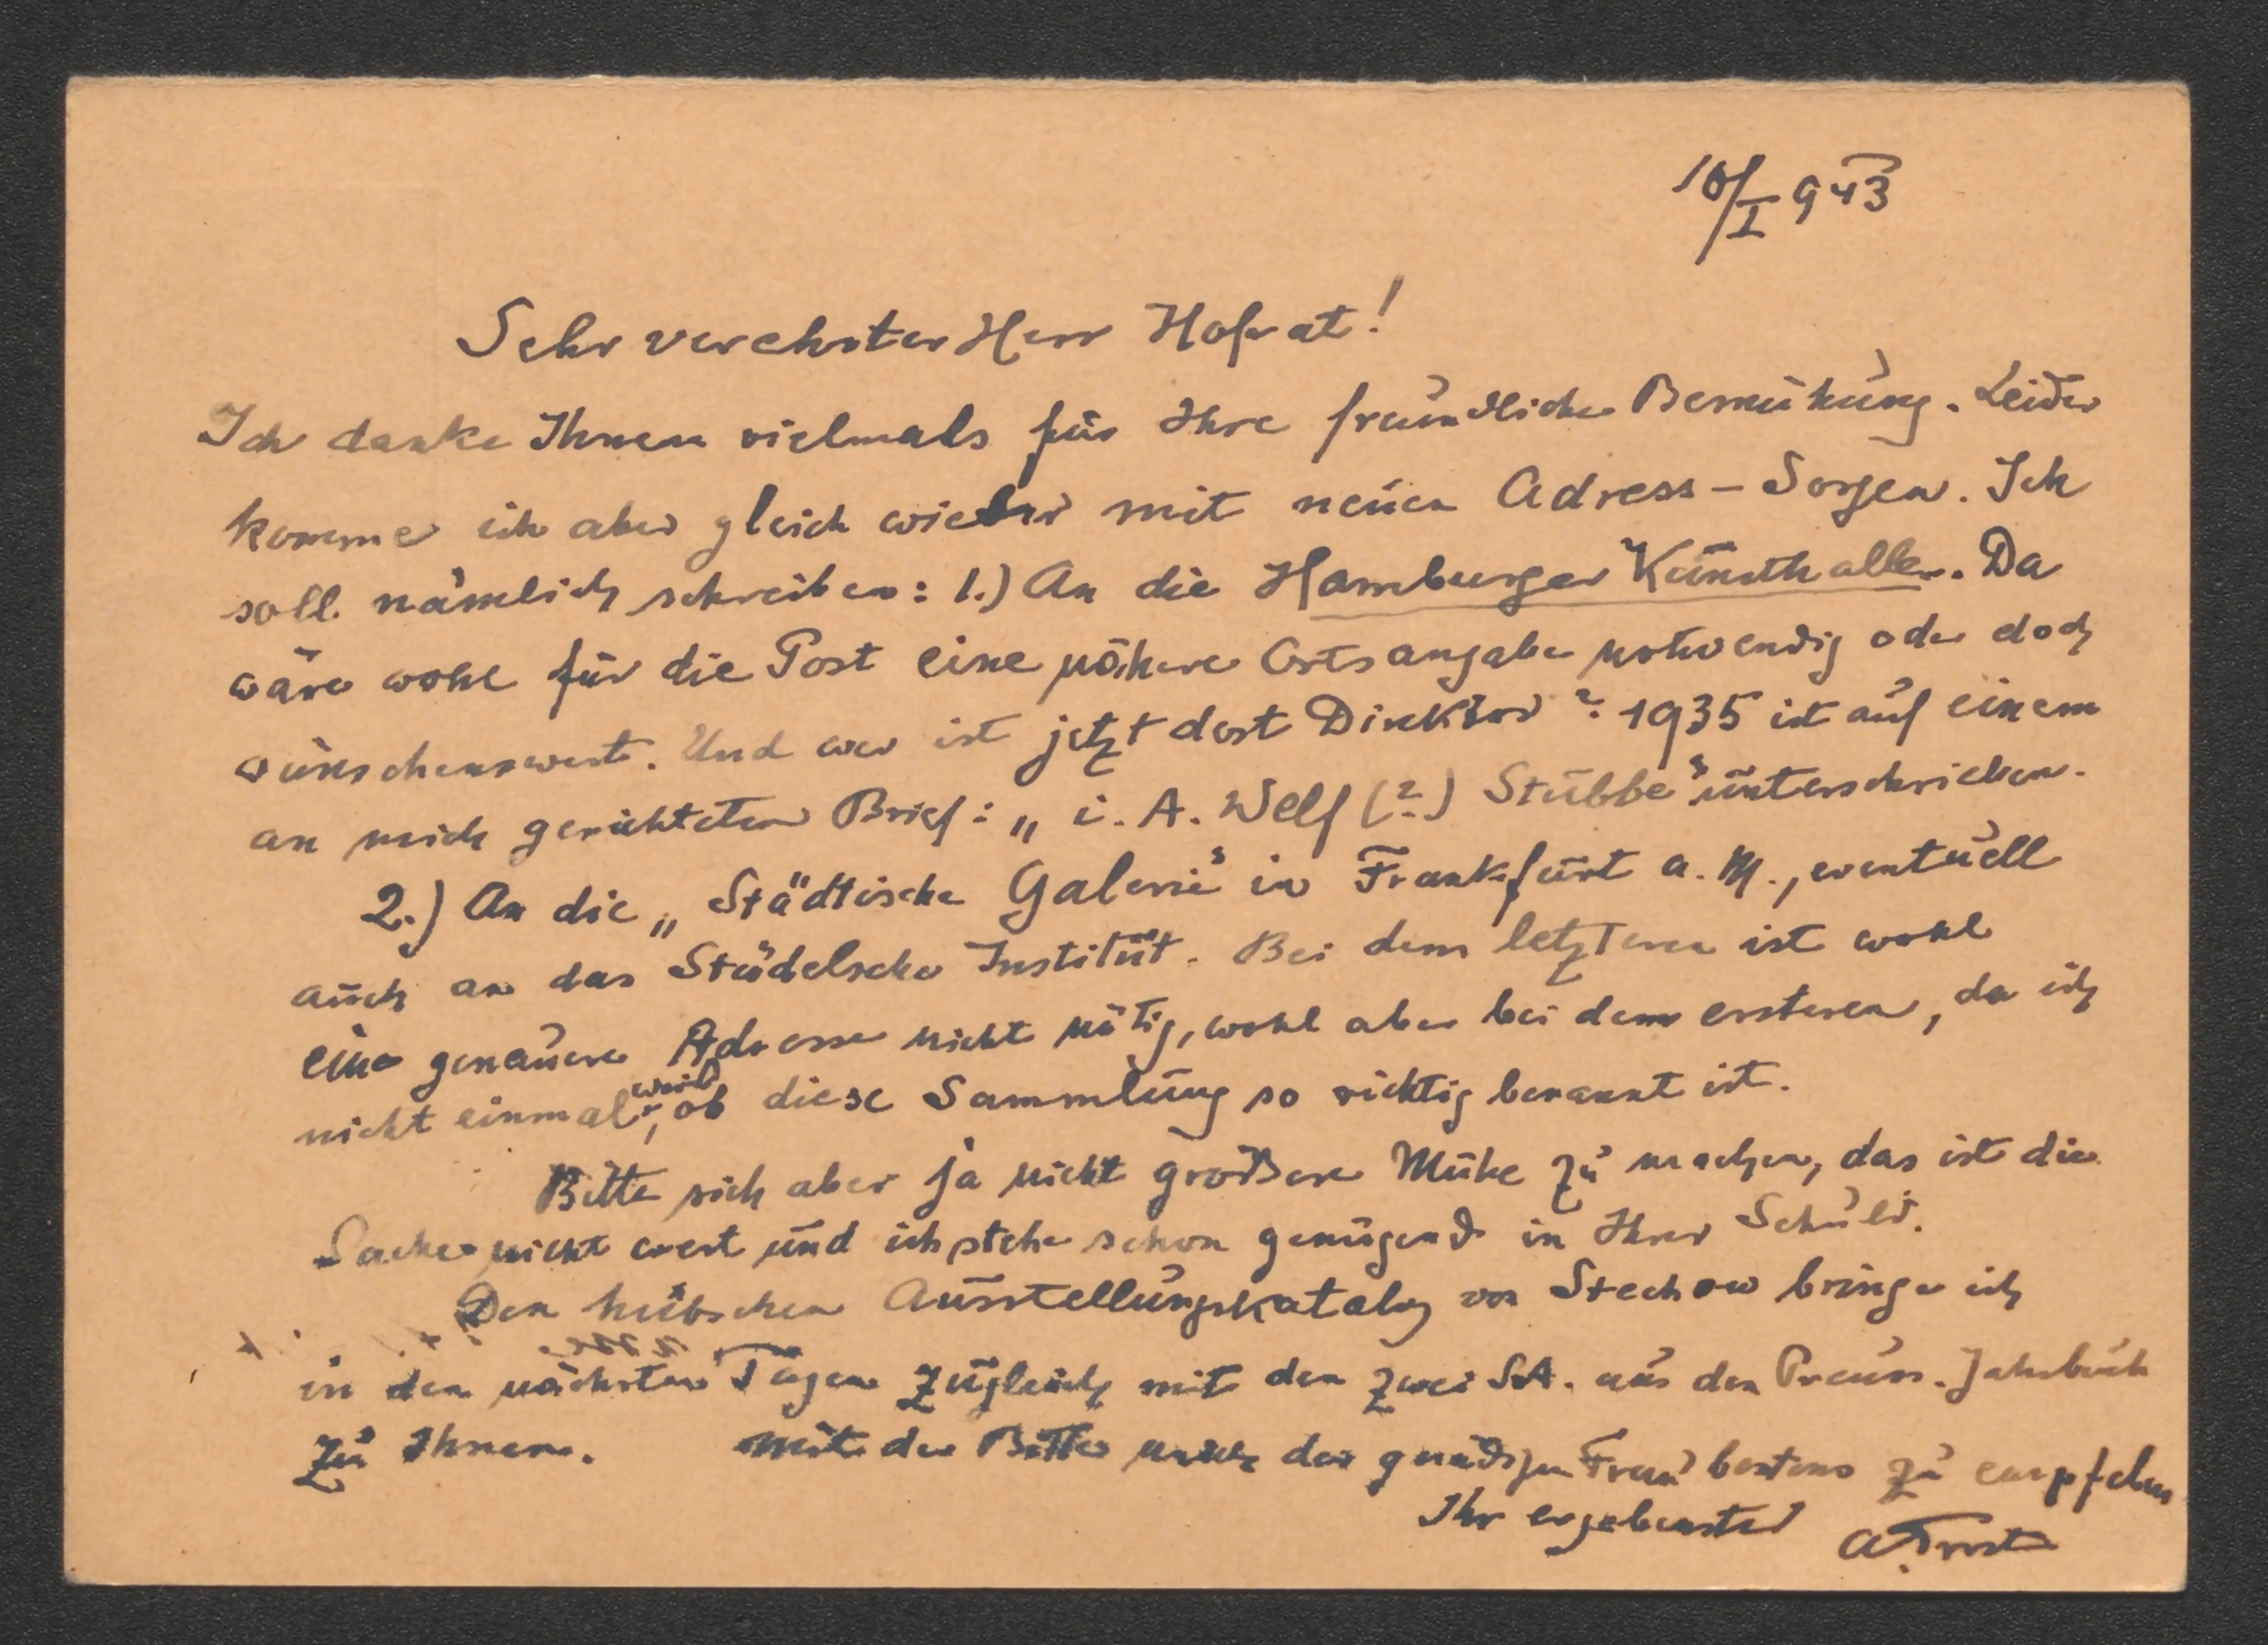 10/I 943
Sehr verehrter Herr Hofrat!
Ich danke Ihnen vielmals für Ihre freundliche Bemühung. Leider
komme ich aber gleich wieder mit neuen Adress-Sorgen. Ich
soll nämlich schreiben: 1.) An die Hamburger Kunsthalle. Da
wäre wohl für die Post eine nähere Ortsangabe notwendig oder doch
wünschenswert. Und wer ist jetzt dort Direktor? 1935 ist auf einem
an mich gerichteten Brief: „i. A. Welf (?) Stubbe" unterschrieben.
2.) An die „Städtische Galerie" in Frankfurt a. M., eventuell
auch an das Städelsche Institut. Bei dem letzteren ist wohl
eine genauere Adresse nicht nötig, wohl aber bei dem ersteren, da ich
nicht einmal weiß, ob diese Sammlung so richtig benannt ist.
Bitte sich aber ja nicht größere Mühe zu machen, das ist die
Sache nicht wert und ich stehe schon genügend in Ihrer Schuld.
Den hübschen Ausstellungskatalog von Stechow bringe ich
in den nächsten Tagen zugleich mit den zwei S.A. aus den Preuss. Jahrbuch
zu Ihnen. Mit der Bitte mich der gnädigen Frau bestens zu empfehlen
Ihr ergebenster